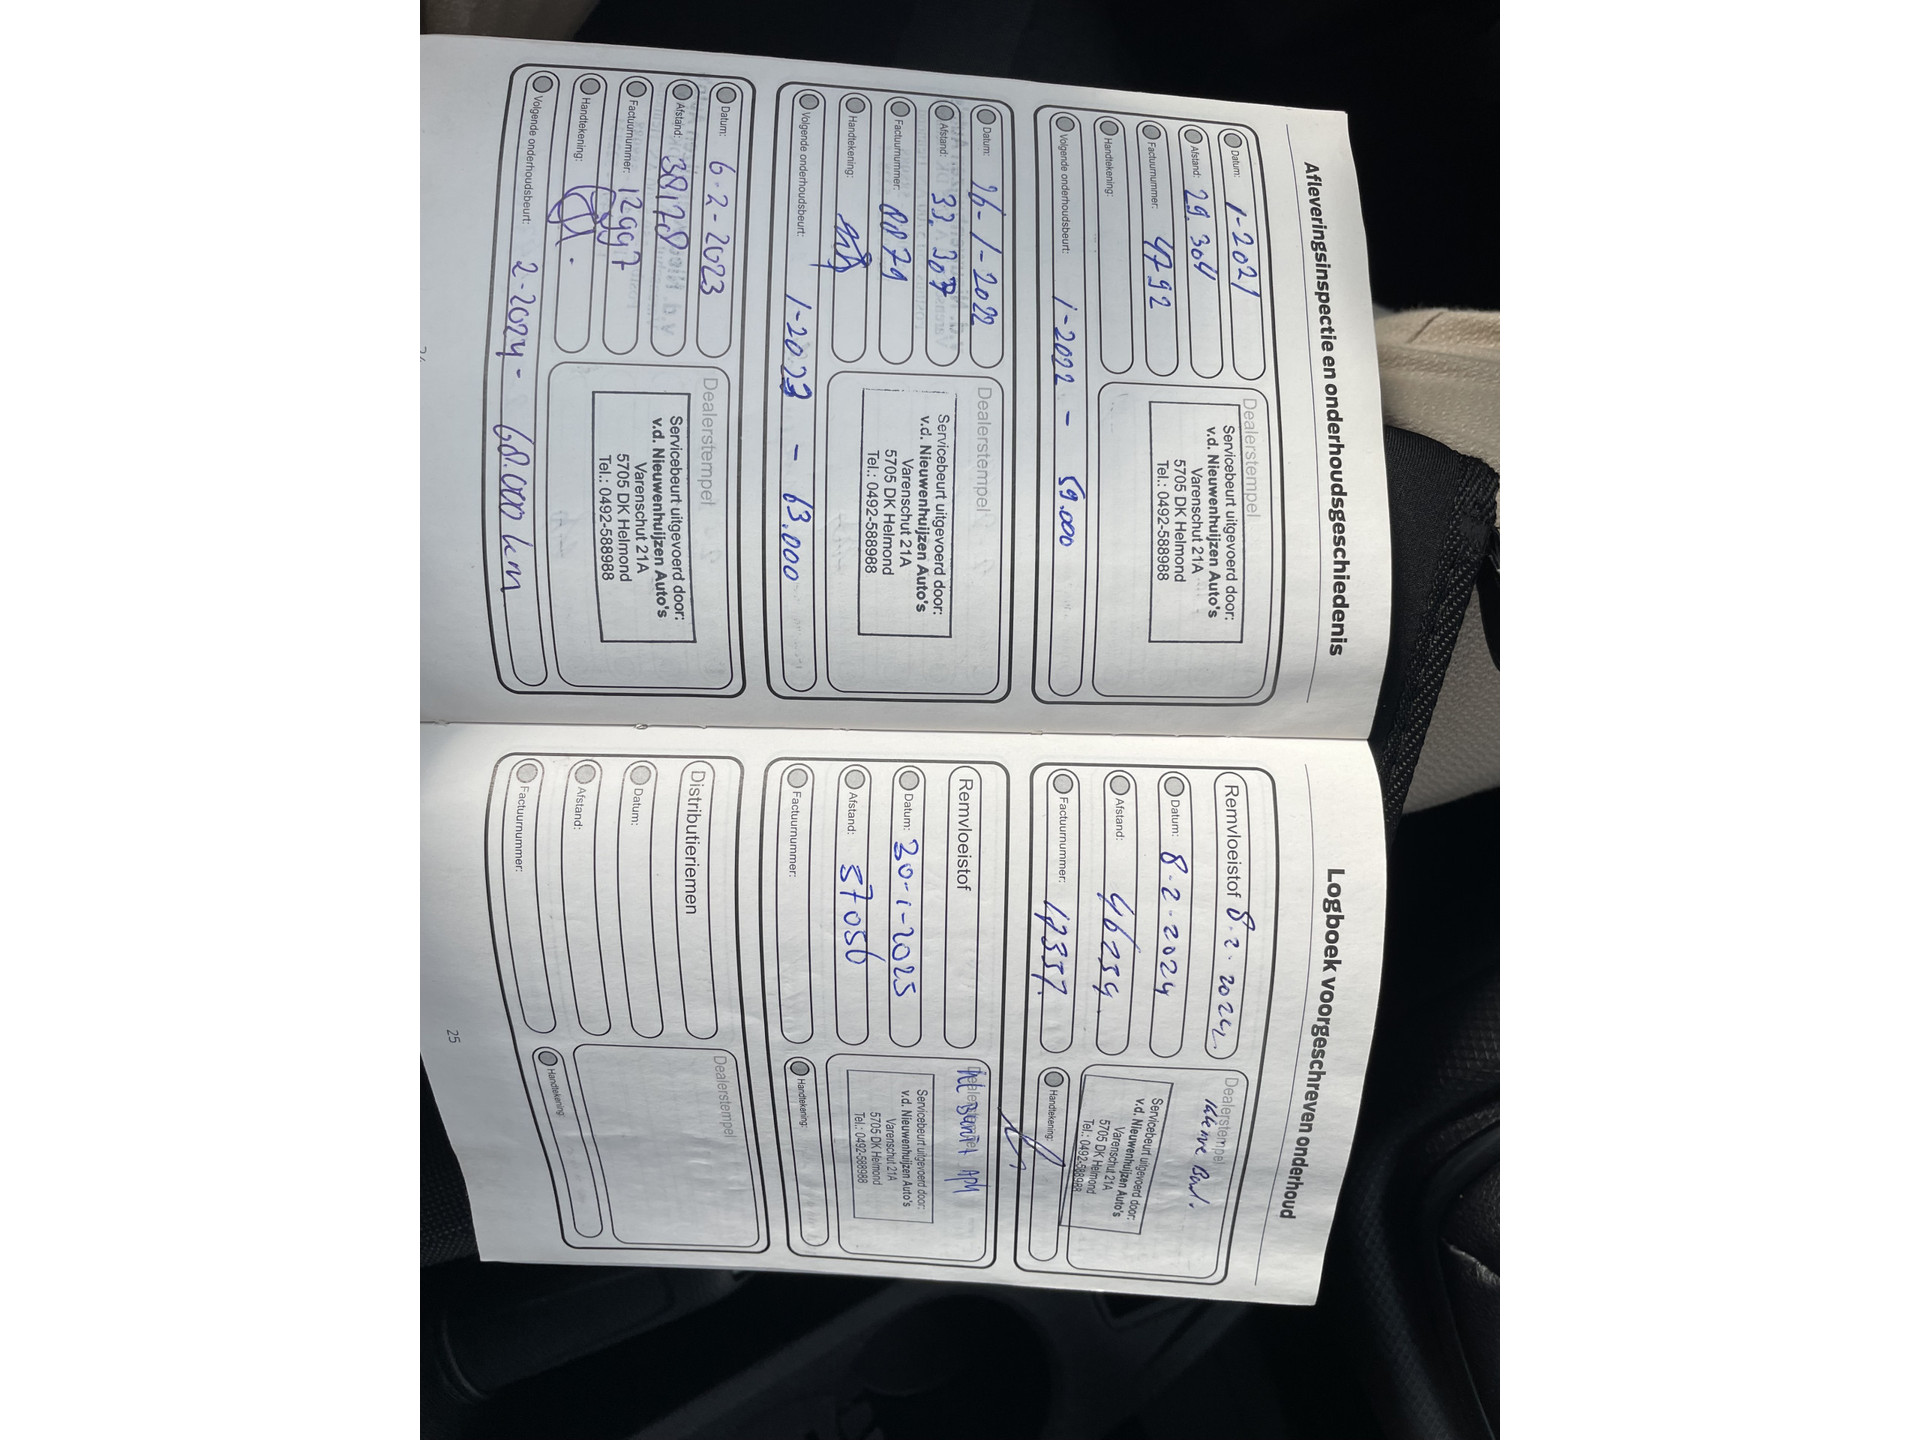 Afleveringsinspectie en onderhoudsgeschiedenis
Datum: 1-2021
Afstand: 29.304
Factuurnummer: 4792
Handtekening:
Volgende onderhoudsbeurt: 1-2022 - 59.000
Dealerstempel
Servicebeurt uitgevoerd door:
v.d. Nieuwenhuijzen Auto's
Varenschut 21A
5705 DK Helmond
Tel.: 0492-588988
Datum: 26-1-2022
Afstand: 33.307
Factuurnummer: 8879
Handtekening:
Volgende onderhoudsbeurt: 1-2023 - 63.000
Dealerstempel
Servicebeurt uitgevoerd door:
v.d. Nieuwenhuijzen Auto's
Varenschut 21A
5705 DK Helmond
Tel.: 0492-588988
Datum: 6-2-2023
Afstand: 38178
Factuurnummer: 12997
Handtekening:
Volgende onderhoudsbeurt: 2-2024 - 68.000 km
Dealerstempel
Servicebeurt uitgevoerd door:
v.d. Nieuwenhuijzen Auto's
Varenschut 21A
5705 DK Helmond
Tel.: 0492-588988
Logboek voorgeschreven onderhoud
Remvloeistof 8.2.2024.
Datum: 8.2.2024
Afstand: 46234.
Factuurnummer: 17337.
Dealerstempel
Kleine Beurt.
Servicebeurt uitgevoerd door:
v.d. Nieuwenhuijzen Auto's
Varenschut 21A
5705 DK Helmond
Tel.: 0492-588988
Handtekening:
Remvloeistof
Datum: 30-1-2025
Afstand: 57056
Factuurnummer:
Dealerstempel
Beurt + APK
Servicebeurt uitgevoerd door:
v.d. Nieuwenhuijzen Auto's
Varenschut 21A
5705 DK Helmond
Tel.: 0492-588988
Handtekening:
Distributieriemen
Datum:
Afstand:
Factuurnummer:
Dealerstempel
Handtekening:
25